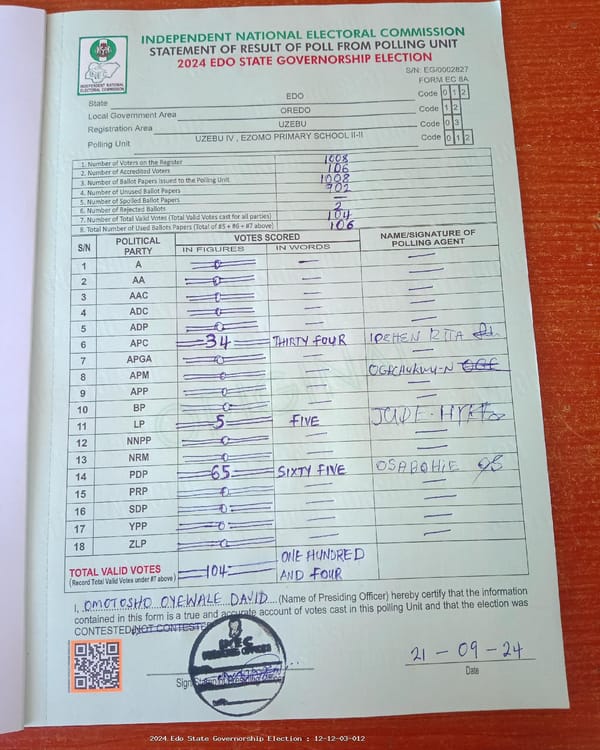 INDEPENDENT NATIONAL ELECTORAL COMMISSION
STATEMENT OF RESULT OF POLL FROM POLLING UNIT
2024 EDO STATE GOVERNORSHIP ELECTION
INEC
INDEPENDENT NATIONAL
ELECTORAL COMMISSION
S/N: EG/0002827
FORM EC 8A
State EDO Code 0 1 2
Local Government Area OREDO Code 1 2
Registration Area UZEBU Code 0 3
Polling Unit UZEBU IV , EZOMO PRIMARY SCHOOL II-II Code 0 1 2
1. Number of Voters on the Register 1008
2. Number of Accredited Voters 106
3. Number of Ballot Papers Issued to the Polling Unit 1008
4. Number of Unused Ballot Papers 902
5. Number of Spoiled Ballot Papers —
6. Number of Rejected Ballots 2
7. Number of Total Valid Votes (Total Valid Votes cast for all parties) 104
8. Total Number of Used Ballots Papers (Total of #5 + #6 + #7 above) 106
S/N POLITICAL PARTY VOTES SCORED NAME/SIGNATURE OF POLLING AGENT
IN FIGURES IN WORDS
1 A 0 — —
2 AA 0 — —
3 AAC 0 — —
4 ADC 0 — —
5 ADP 0 — —
6 APC 34 THIRTY FOUR IDEHEN RITA
7 APGA 0 — —
8 APM 0 —
9 APP 0 — —
10 BP 0 — —
11 LP 5 FIVE JUDE
12 NNPP 0 — —
13 NRM 0 — —
14 PDP 65 SIXTY FIVE OSABOHIE
15 PRP 0 — —
16 SDP 0 — —
17 YPP 0 — —
18 ZLP 0 —
TOTAL VALID VOTES 104 ONE HUNDRED AND FOUR
(Record Total Valid Votes under #7 above)
I, OMOTOSHO OYEWALE DAVID (Name of Presiding Officer) hereby certify that the information
contained in this form is a true and accurate account of votes cast in this polling Unit and that the election was
CONTESTED/NOT CONTESTED
INEC
PRESIDING OFFICER
21 - 09 - 24
Date
2024 Edo State Governorship Election : 12-12-03-012